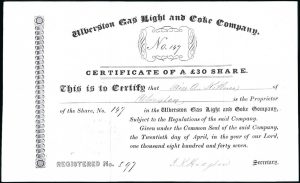 Ulverston Gas Light and Coke Company.
No. 147
CERTIFICATE OF A £30 SHARE.
This is to Certify that Miss of
is the Proprietor
of the Share, No. 147 in the Ulverston Gas Light and Coke Company,
Subject to the Regulations of the said Company.
Given under the Common Seal of the said Company, the
Twentieth day of April, in the year of our Lord, one
thousand eight hundred and forty seven.
REGISTERED No. 597 Secretary.